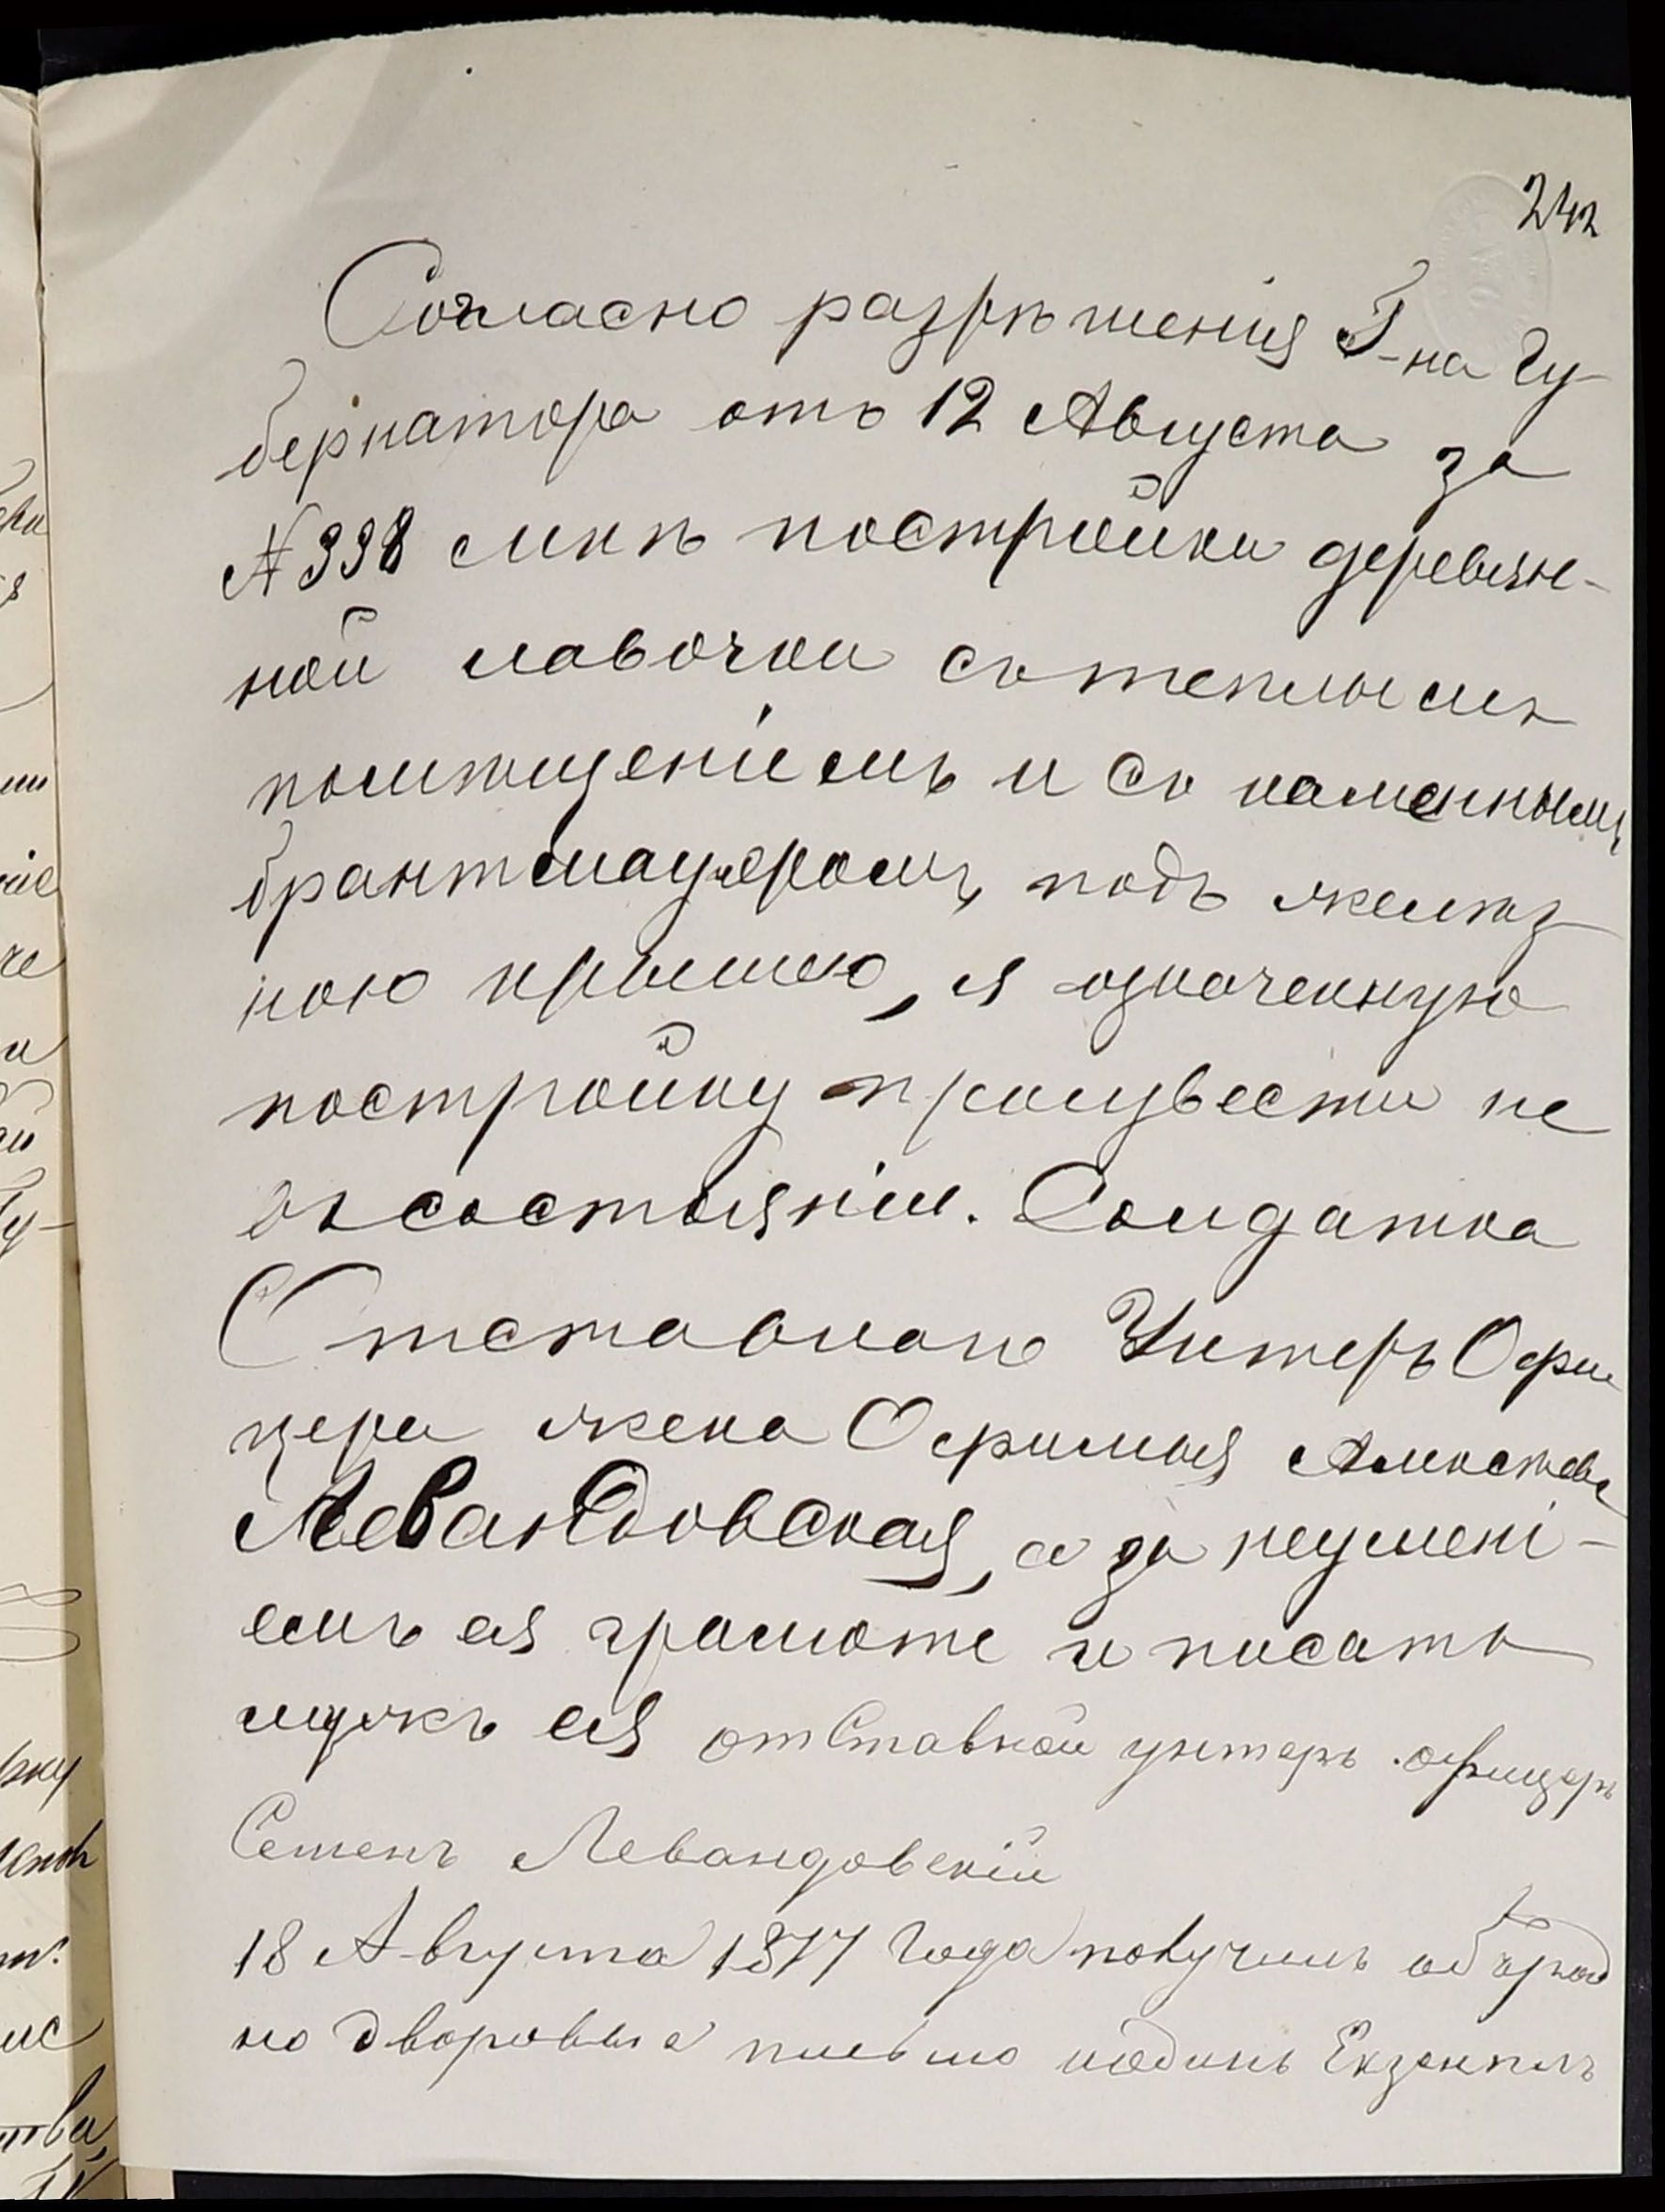 242
Согласно разрѣшенія Г-на Гу-
бернатора отъ 12 Августа за
№ 338 мнѣ постройки деревян-
ной лавочки съ теплымъ
помѣщеніемъ и съ каменнымъ
брантмауеромъ, подъ желѣз
ною крышею, я означенную
постройку произвести не
въ состояніи. Солдатка
Отставнаго Унтеръ Офи
цера жена Офимья
Левандовская, а за неумені-
емъ ея грамоте и писать
мужъ ея отставной унтеръ офицеръ
Семенъ Левандовскій
18 Августа 1877 года получилъ обърат
но дворовые письмо иодинъ Екземплъ